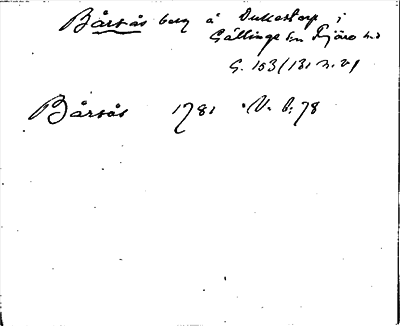 Bårsås berg å Dukestorp i
Gällinge sn Fjäre h.d
G. 103/131 n. 21
Bårsås 1781 V. b: 78